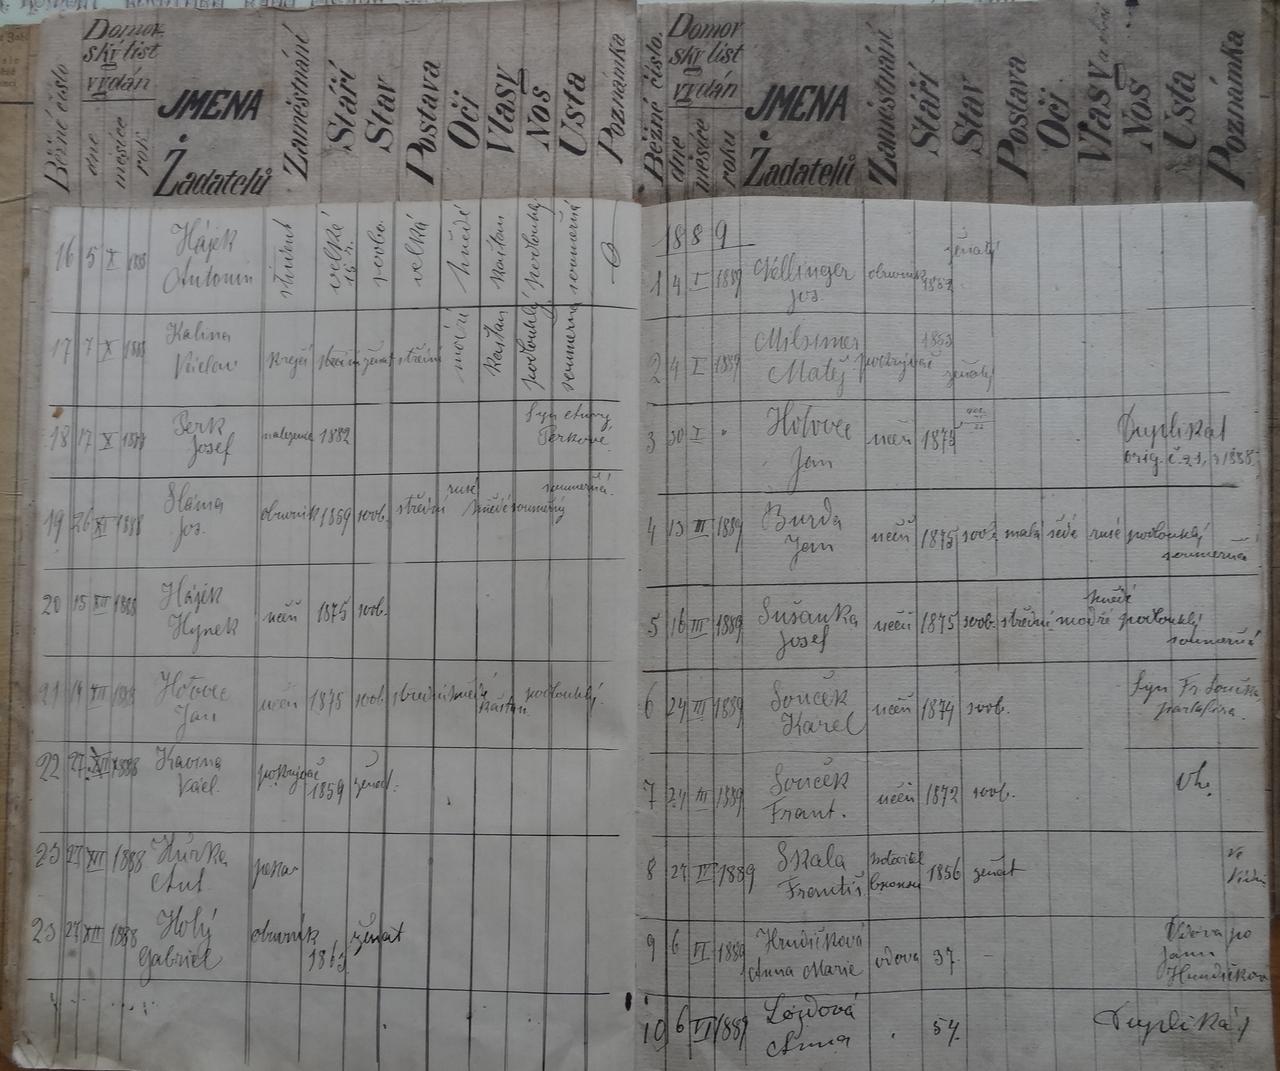 Běžné číslo
Domorský list vydán
dne
měsíce
roku
JMENA Žadatelů
Zaměstnání
Stáří
Stav
Postava
Oči
Vlasy
Nos
Ústa
Poznámka
16 5 X 1888 Hájek Antonín student velké 15 r. svob. velká hnědé kaštan podlouhlý souměrná
17 7 X 1888 Kalina krejčí ženat střední modré kaštan podlouhlý souměrná
18 17 X 1888 Perk Josef 1882 Syn Perkové
19 26 XI 1888 Sláma Jos. obuvník 1869 svob. střední rusé hnědé souměrný souměrná
20 15 XII 1888 Hájek Hynek učeň 1875 svob.
21 19 XII 1888 Hoťovec Jan učeň 1875 svob. kaštan podlouhlý
22 27 XII 1888 Kavina Václ. pokrývač 1859 ženat
23 27 XII 1888 Hůrka Ant.
23 27 XII 1888 Holý Gabriel obuvník ženat
Běžné číslo.
Domorský list vydán
dne
měsíce
roku
JMENA Žadatelů
Zaměstnání
Stáří
Stav
Postava
Oči
Vlasy
Nos
Ústa
Poznámka
1889
1 4 I 1889 Jos. obuvník ženatý
2 4 I 1889 Matěj pokrývač 1853 ženatý
3 30 I " Hoťovec Jan učeň 1875 Duplikat orig. č. 21, r 1888
4 13 III 1889 Burda Jan učeň 1875 svob. malá šedé rusé podlouhlý souměrná
5 16 III 1889 Sušanka Josef učeň 1875 svob. střední modré hnědé podlouhlý souměrná
6 24 III 1889 Souček Karel učeň 1874 svob. Syn Fr. Součka
7 24 III 1889 Souček Frant. učeň 1872 svob.
8 27 IV 1889 Skala Františ. 1856 ženat ve Vídni
9 6 VI 1889 Hrudičková Anna Marie vdova 37. Vdova po Janu
10 6 VI 1889 Anna 54. Duplikát